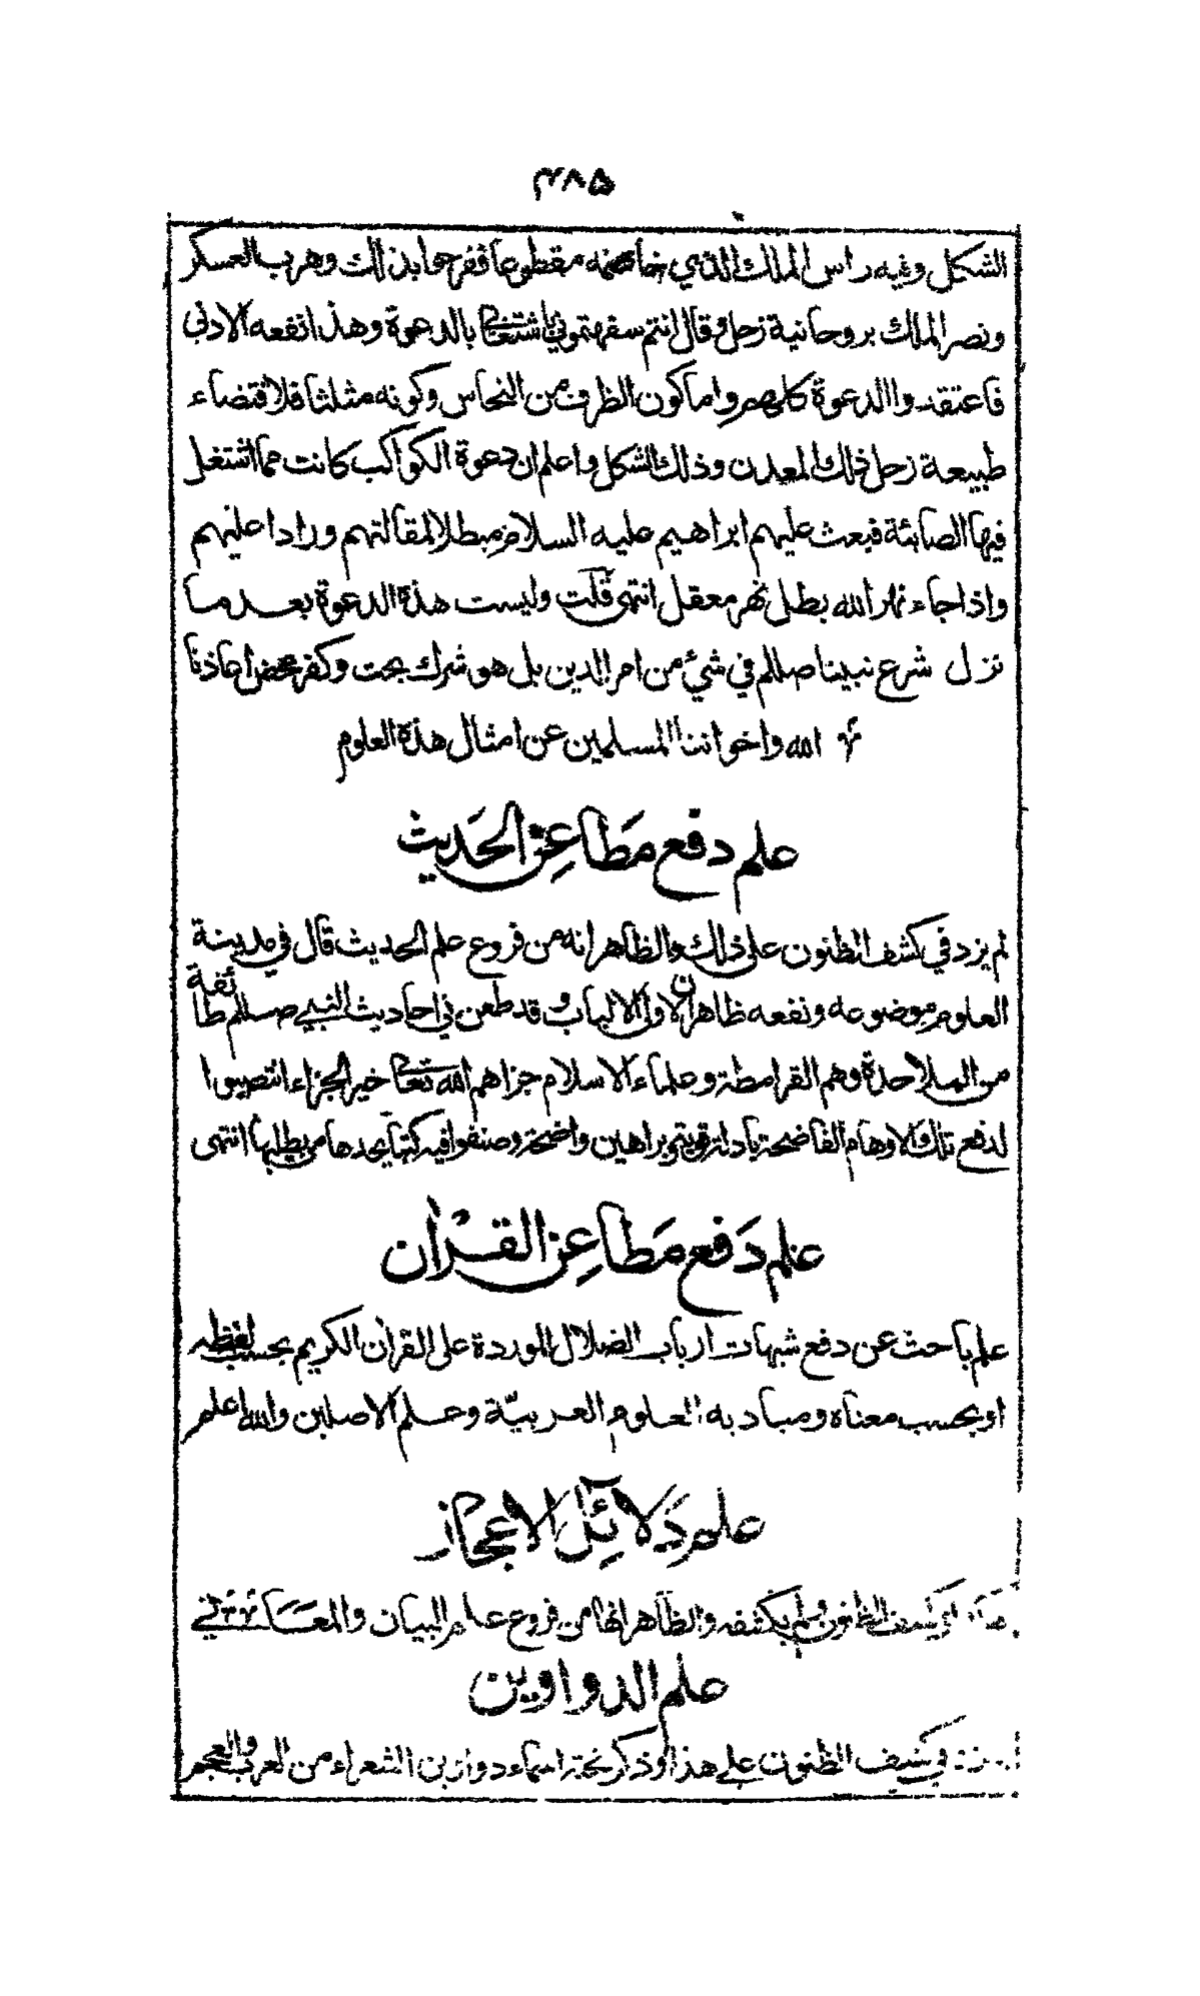 ۴۸۵
الشكل وفيه راس الملك الذي خاصمه مقطوعا ففرحوا بذلك وهرب العسكر
ونصر الملك بروحانية زحل وقال انتم سفهتموني باشتغالي بالدعوة وهذا نفعه الادنى
فاعتقدوا الدعوة كلهم واما كون الظرف من النحاس وكونه مثلثا فلاقتضاء
طبيعة زحل ذلك المعدن وذلك الشكل واعلم ان دعوة الكواكب كانت مما اشتغل
فيها الصابئة فبعث عليهم ابراهيم عليه السلام مبطلا لمقالتهم ورادا عليهم
واذا جاء نهر الله بطل نهر معقل انتهى قلت وليست هذه الدعوة بعد ما
نزل شرع نبينا صللم في شيء من امر الدين بل هو شرك بحت وكفر محض اعاذنا
الله واخواننا المسلمين عن امثال هذه العلوم
علم دفع مَطاعِن الحَديث
لم يزد في كشف الظنون على ذلك والظاهر انه من فروع علم الحديث قال في مدينة
العلوم موضوعه ونفعه ظاهران لاولي الالباب وقد طعن في احاديث النبي صللم طائفة
من الملاحدة وهم القرامطة وعلماء الاسلام جزاهم الله تعالى خير الجزاء انتصبوا
لدفع تلك الاوهام الفاضحة بادلة قوية وبراهين واضحة وصنفوا فيه كتبا يجدها من يطلبها انتهى
علم دَفع مَطاعِن القرْان
علم باحث عن دفع شبهات ارباب الضلال الموردة على القران الكريم بحسب لفظه
او بحسب معناه ومباديه العلوم العربيّة وعلم الاصلين والله اعلم
علم دَلائِل الاعجاز
في كشف الظنون ولم يكشفه والظاهر انها من فروع علم البيان والمعاني
علم الدواوين
في كشف الظنون على هذا وذكر تحته اسماء دواوين الشعراء من العرب والعجم